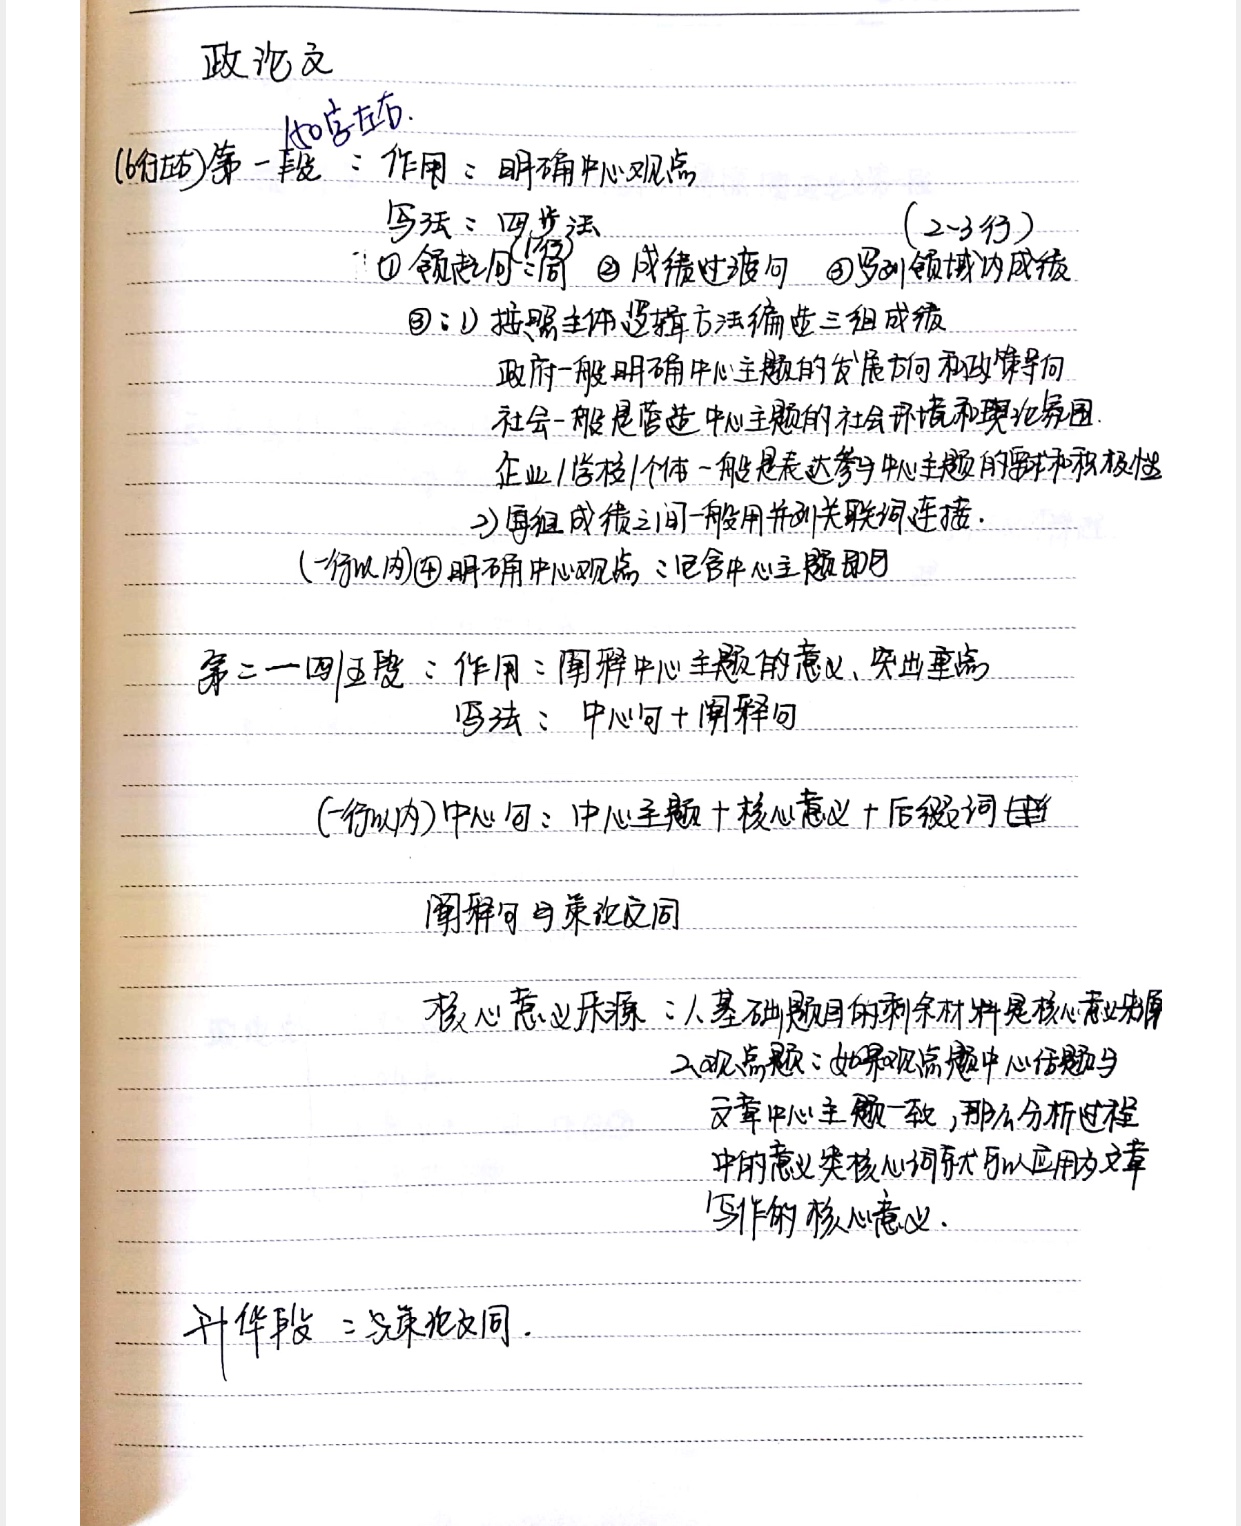 政论文
150字左右.
(6行左右)第一段：作用：明确中心观点
写法：四步法
(1行) (2-3行)
①领起句：同 ②成绩过渡句 ③罗列领域内成绩
③：1)按照主体逻辑方法编造三组成绩
政府一般明确中心主题的发展方向和政策导向
社会一般是营造中心主题的社会环境和舆论氛围.
企业/学校/个体一般是表达参与中心主题的需求和积极性
2)每组成绩之间一般用并列关联词连接.
(一行以内)④明确中心观点：包含中心主题即可
第二一四/五段：作用：阐释中心主题的意义、突出重点
写法：中心句+阐释句
(一行以内)中心句：中心主题+核心意义+后缀词
阐释句与策论文同
核心意义来源：1、基础题目的剩余材料是核心意义来源
2、观点题：如果观点题中心话题与
文章中心主题一致,那么分析过程
中的意义类核心词就可以应用为文章
写作的核心意义.
升华段：与策论文同.